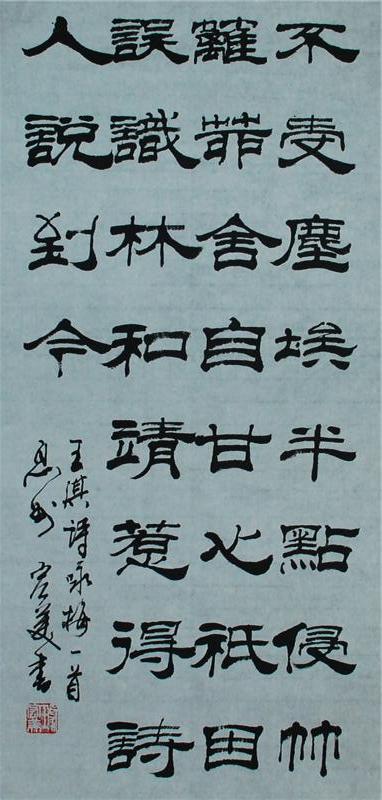 不受塵埃半點侵竹
籬茆舍自甘心祇因
誤識林和靖惹得詩
人說到今
王淇詩咏梅一首
書